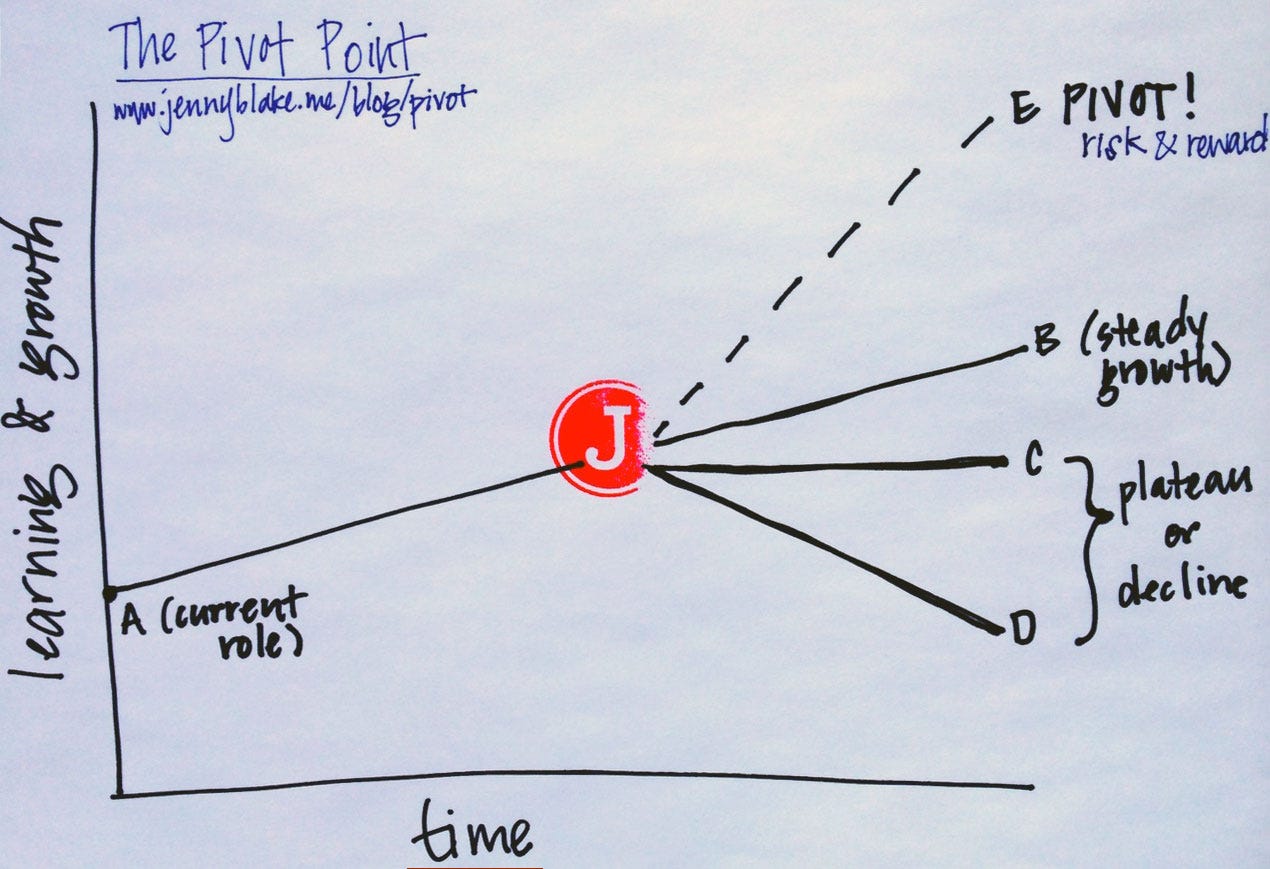 The Pivot Point
www.jennyblake.me/blog/pivot
E PIVOT!
risk & reward
learning & growth
B (steady
growth)
J
C
plateau
or
decline
D
A (current
role)
time